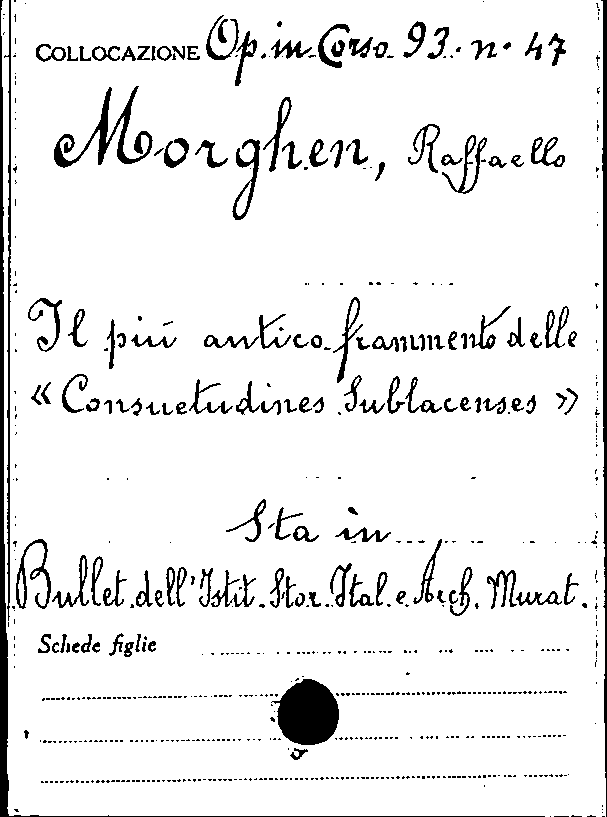 COLLOCAZIONE Op. in Corso 93. n. 47
Morghen, Raffaello
Il più antico frammento delle
« Consuetudines Sublacenses »
Sta in
Bullet. dell'Istit. Stor. Ital. e Arch. Murat.
Schede figlie